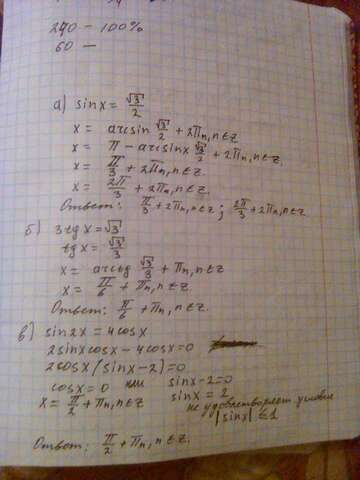 240 – 100%
60 —
а) sinx = √3/2
x = arcsin √3/2 + 2πn, n∈Z
x = π - arcsinx √3/2 + 2πn, n∈Z.
x = π/3 + 2πn, n∈Z.
x = 2π/3 + 2πn, n∈Z.
Ответ: π/3 + 2πn, n∈Z ; 2π/3 + 2πn, n∈Z
б) 3tgx = √3
tgx = √3/3
x = arctg √3/3 + πn, n∈Z
x = π/6 + πn, n∈Z.
Ответ: π/6 + πn, n∈Z.
в) sin2x = 4cosx
2sinxcosx – 4cosx = 0
2cosx(sinx – 2) = 0
cosx = 0 или sinx – 2 = 0
x = π/2 + πn, n∈Z sinx = 2
не удовлетворяет условию
|sinx| ≤ 1
Ответ: π/2 + πn, n∈Z.